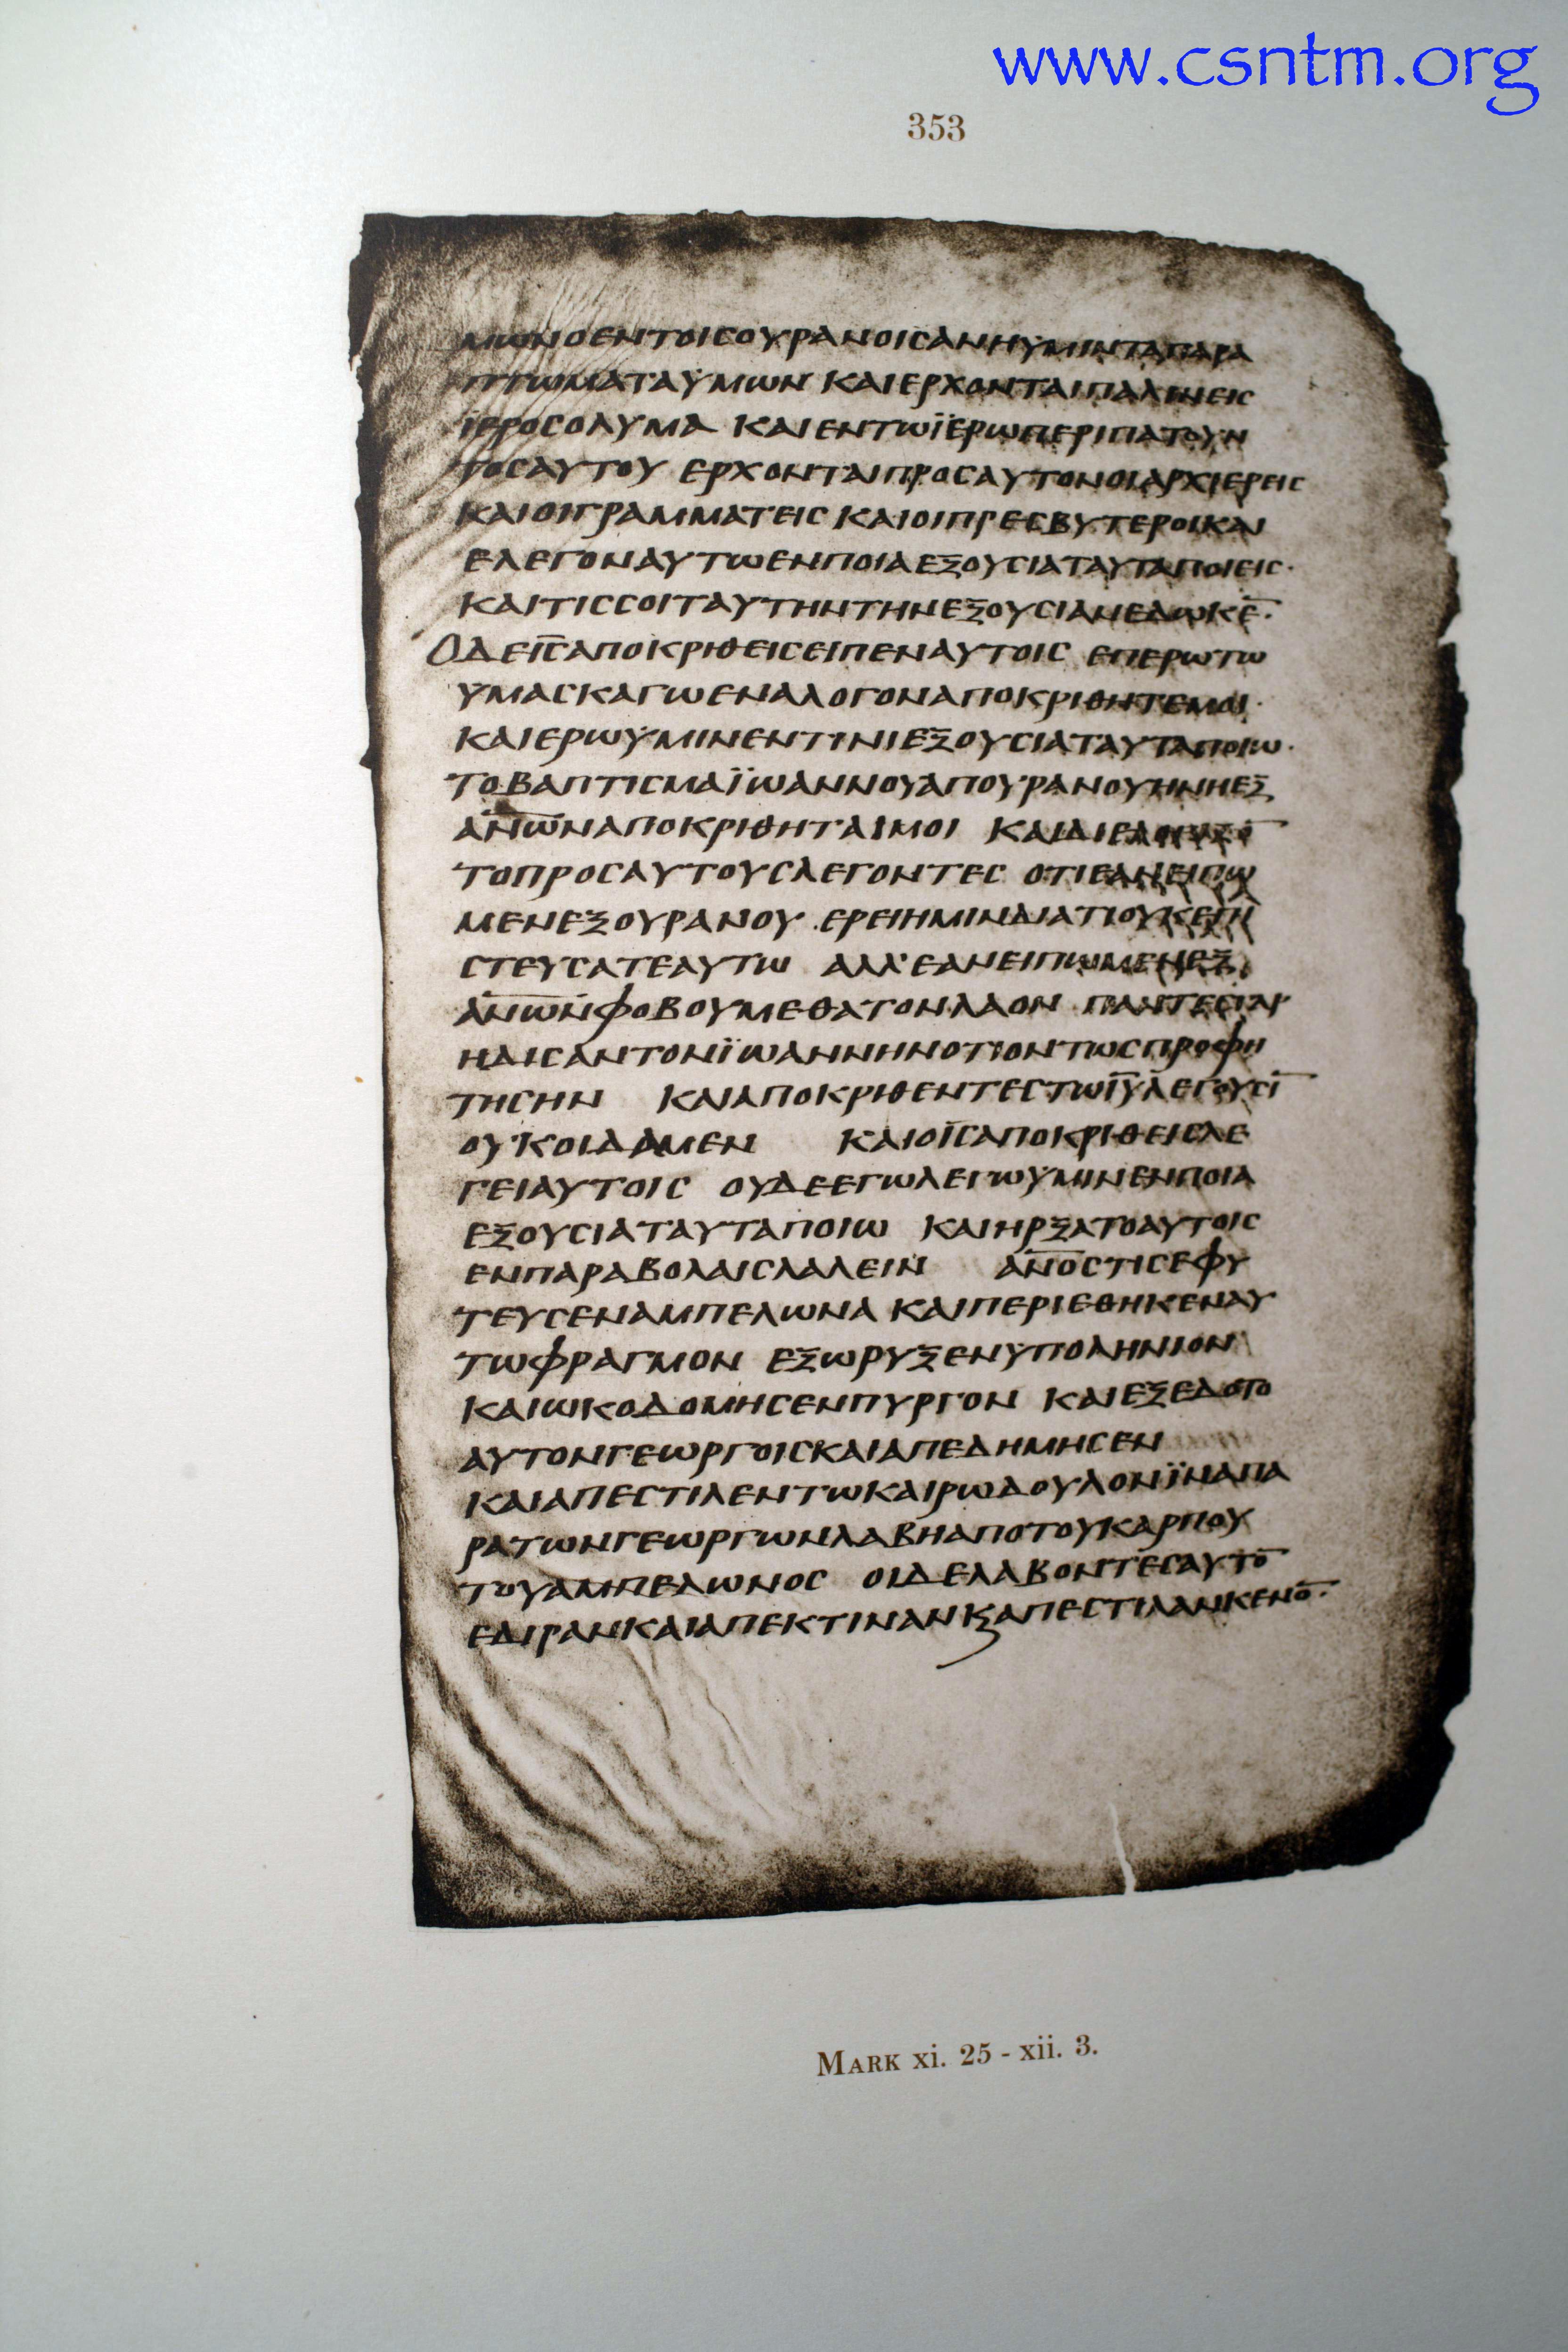 www.csntm.org
353
ΜΩΝΟΕΝΤΟΙΣΟΥΡΑΝΟΙΣΑΝΗΥΜΙΝΤΑΠΑΡΑ
ΠΤΩΜΑΤΑΫΜΩΝ ΚΑΙΕΡΧΟΝΤΑΙΠΑΛΙΝΕΙΣ
ΪΕΡΟΣΟΛΥΜΑ ΚΑΙΕΝΤΩΪΕΡΩΠΕΡΙΠΑΤΟΥΝ
ΤΟΣΑΥΤΟΥ ΕΡΧΟΝΤΑΙΠΡΟΣΑΥΤΟΝΟΙΑΡΧΙΕΡΕΙΣ
ΚΑΙΟΙΓΡΑΜΜΑΤΕΙΣ ΚΑΙΟΙΠΡΕΣΒΥΤΕΡΟΙΚΑΙ
ΕΛΕΓΟΝΑΥΤΩΕΝΠΟΙΑΕΞΟΥΣΙΑΤΑΥΤΑΠΟΙΕΙΣ·
ΚΑΙΤΙΣΣΟΙΤΑΥΤΗΝΤΗΝΕΞΟΥΣΙΑΝΕΔΩΚΕ̅·
ΟΔΕΙ̅Σ̅ΑΠΟΚΡΙΘΕΙΣΕΙΠΕΝΑΥΤΟΙΣ ΕΠΕΡΩΤΩ
ΥΜΑΣΚΑΓΩΕΝΑΛΟΓΟΝΑΠΟΚΡΙΘΗΤΕΜΟΙ·
ΚΑΙΕΡΩΫΜΙΝΕΝΤΙΝΙΕΞΟΥΣΙΑΤΑΥΤΑΠΟΙΩ·
ΤΟΒΑΠΤΙΣΜΑΪΩΑΝΝΟΥΑΠΟΥΡΑΝΟΥΗΝΗΕΞ
Α̅Ν̅Ω̅Ν̅ΑΠΟΚΡΙΘΗΤΑΙΜΟΙ
ΤΟΠΡΟΣΑΥΤΟΥΣΛΕΓΟΝΤΕΣ ΟΤΙΕΑΝΕΙΠΩ
ΜΕΝΕΞΟΥΡΑΝΟΥ ΕΡΕΙΗΜΙΝΔΙΑΤΙΟΥΚΕΠΙ
ΣΤΕΥΣΑΤΕΑΥΤΩ ΑΛΛ'ΕΑΝΕΙΠΩΜΕΝΕΞ
Α̅Ν̅Ω̅Ν̅ΦΟΒΟΥΜΕΘΑΤΟΝΛΑΟΝ
ΗΔΙΣΑΝΤΟΝΪΩΑΝΝΗΝΟΤΙΟΝΤΩΣΠΡΟΦΗ
ΤΗΣΗΝ ΚΑΙΑΠΟΚΡΙΘΕΝΤΕΣΤΩΙ̅Υ̅ΛΕΓΟΥΣΙ̅
ΟΥΚΟΙΔΑΜΕΝ ΚΑΙΟΙ̅Σ̅ΑΠΟΚΡΙΘΕΙΣΛΕ
ΓΕΙΑΥΤΟΙΣ ΟΥΔΕΕΓΩΛΕΓΩΥΜΙΝΕΝΠΟΙΑ
ΕΞΟΥΣΙΑΤΑΥΤΑΠΟΙΩ ΚΑΙΗΡΞΑΤΟΑΥΤΟΙΣ
ΕΝΠΑΡΑΒΟΛΑΙΣΛΑΛΕΙΝ Α̅Ν̅Ο̅Σ̅ΤΙΣΕΦΥ
ΤΕΥΣΕΝΑΜΠΕΛΩΝΑ ΚΑΙΠΕΡΙΕΘΗΚΕΝΑΥ
ΤΩΦΡΑΓΜΟΝ ΕΞΩΡΥΞΕΝΥΠΟΛΗΝΙΟΝ
ΚΑΙΩΚΟΔΟΜΗΣΕΝΠΥΡΓΟΝ ΚΑΙΕΞΕΔΟΤΟ
ΑΥΤΟΝΓΕΩΡΓΟΙΣΚΑΙΑΠΕΔΗΜΗΣΕΝ
ΚΑΙΑΠΕΣΤΙΛΕΝΤΩΚΑΙΡΩΔΟΥΛΟΝΪΝΑΠΑ
ΡΑΤΩΝΓΕΩΡΓΩΝΛΑΒΗΑΠΟΤΟΥΚΑΡΠΟΥ
ΤΟΥΑΜΠΕΛΩΝΟΣ ΟΙΔΕΛΑΒΟΝΤΕΣΑΥΤΟ̅
ΕΔΙΡΑΝΚΑΙΑΠΕΚΤΙΝΑΝϏΑΠΕΣΤΙΛΑΝΚΕΝΟ̅·
MARK xi. 25 - xii. 3.